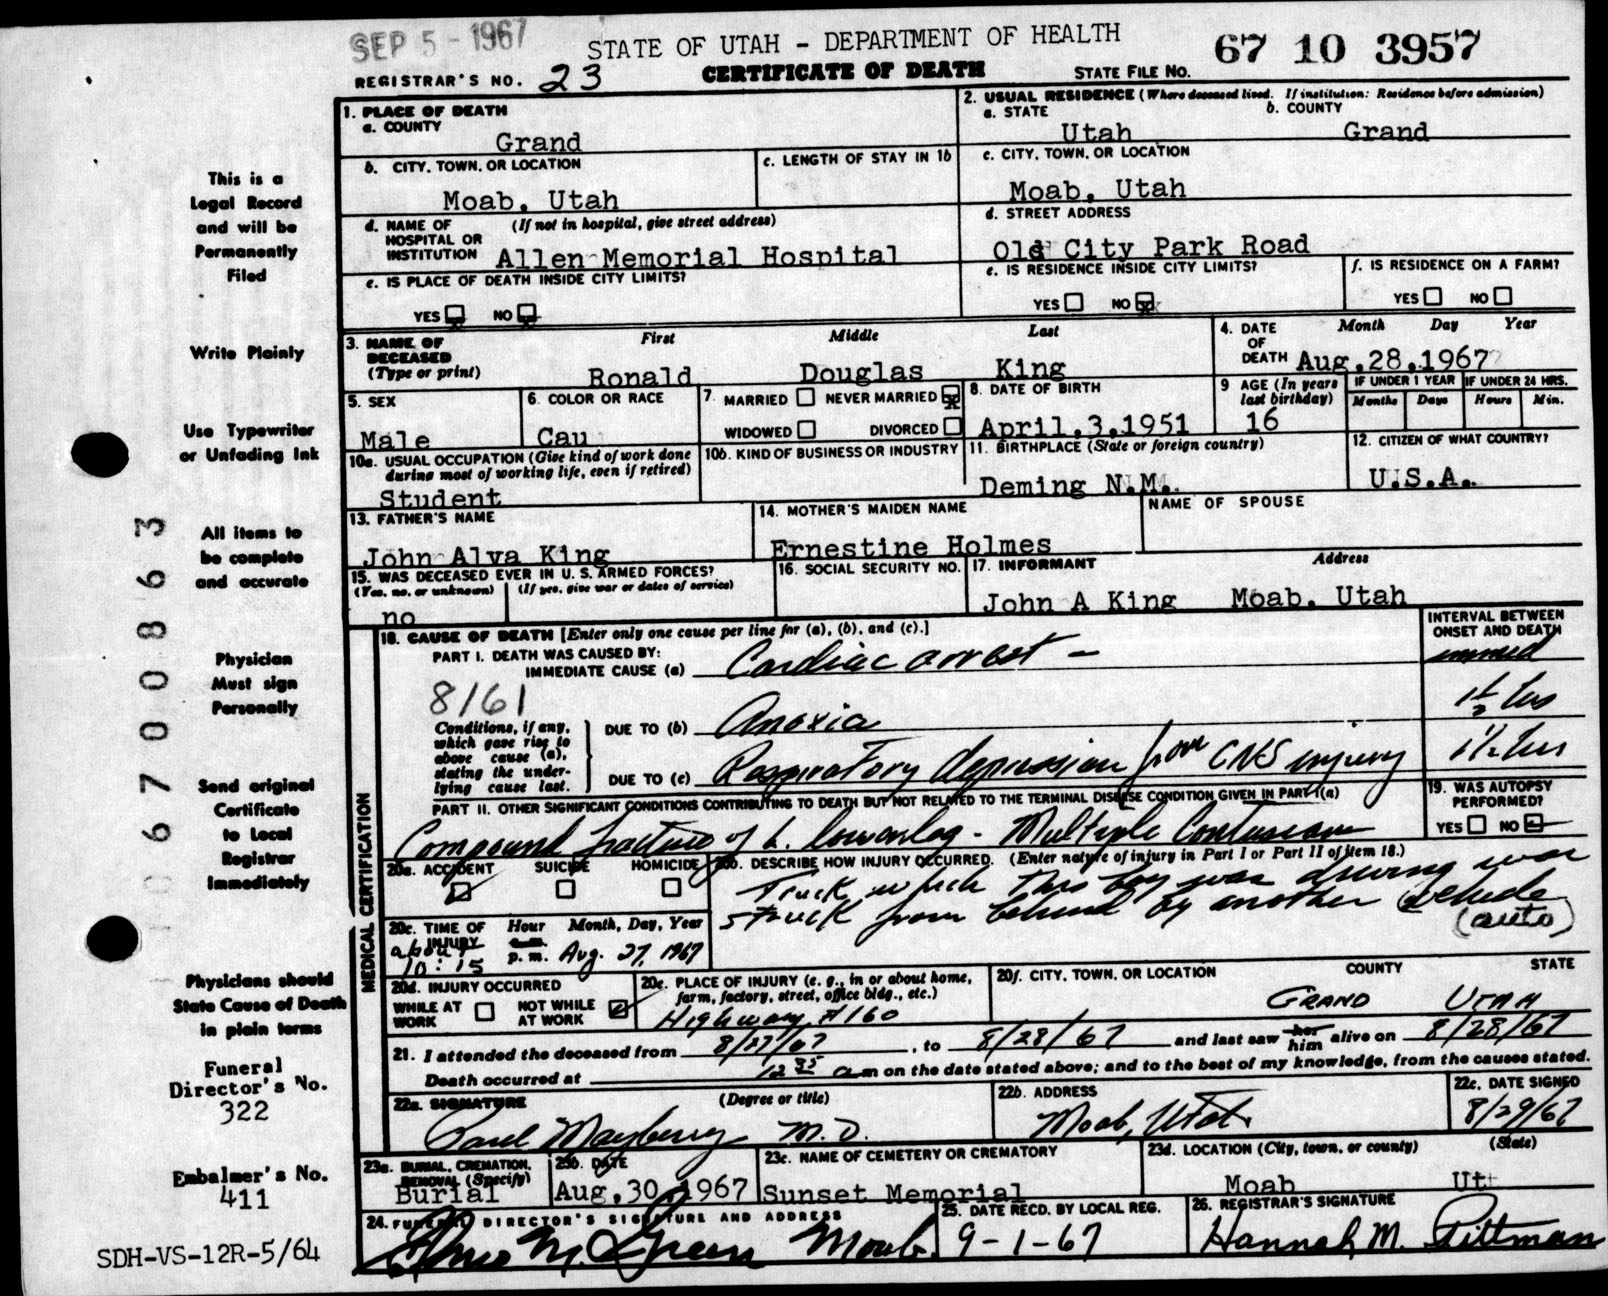 SEP 5 - 1967
STATE OF UTAH - DEPARTMENT OF HEALTH
67 10 3957
REGISTRAR'S NO. 23
CERTIFICATE OF DEATH
STATE FILE NO.
This is a
Legal Record
and will be
Permanently
Filed
Write Plainly
Use Typewriter
or Unfading Ink
All items to
be complete
and accurate
Physician
Must sign
Personally
Send original
Certificate
to Local
Registrar
Immediately
Physicians should
State Cause of Death
in plain terms
Funeral
Director's No.
322
Embalmer's No.
411
SDH-VS-12R-5/64
06700863
1. PLACE OF DEATH
a. COUNTY
Grand
2. USUAL RESIDENCE (Where deceased lived. If institution: Residence before admission)
a. STATE b. COUNTY
Utah Grand
b. CITY, TOWN, OR LOCATION
Moab, Utah
c. LENGTH OF STAY IN 1b
c. CITY, TOWN, OR LOCATION
Moab, Utah
d. NAME OF (If not in hospital, give street address)
HOSPITAL OR
INSTITUTION Allen Memorial Hospital
d. STREET ADDRESS
Old City Park Road
e. IS PLACE OF DEATH INSIDE CITY LIMITS?
YES NO
e. IS RESIDENCE INSIDE CITY LIMITS?
YES NO
f. IS RESIDENCE ON A FARM?
YES NO
3. NAME OF
DECEASED
(Type or print)
First Middle Last
Ronald Douglas King
4. DATE
OF
DEATH
Month Day Year
Aug.28.1967
5. SEX
Male
6. COLOR OR RACE
Cau
7. MARRIED NEVER MARRIED
WIDOWED DIVORCED
8. DATE OF BIRTH
April.3.1951
9 AGE (In years
last birthday)
16
IF UNDER 1 YEAR IF UNDER 24 HRS.
Months Days Hours Min.
10a. USUAL OCCUPATION (Give kind of work done
during most of working life, even if retired)
Student
10b. KIND OF BUSINESS OR INDUSTRY
11. BIRTHPLACE (State or foreign country)
Deming N.M.
12. CITIZEN OF WHAT COUNTRY?
U.S.A.
13. FATHER'S NAME
John Alva King
14. MOTHER'S MAIDEN NAME
Ernestine Holmes
NAME OF SPOUSE
15. WAS DECEASED EVER IN U. S. ARMED FORCES?
(Yes, no, or unknown) (If yes, give war or dates of service)
no
16. SOCIAL SECURITY NO.
17. INFORMANT Address
John A King Moab, Utah
MEDICAL CERTIFICATION
18. CAUSE OF DEATH [Enter only one cause per line for (a), (b), and (c).]
INTERVAL BETWEEN
ONSET AND DEATH
PART I. DEATH WAS CAUSED BY:
IMMEDIATE CAUSE (a) Cardiac arrest - immed
8161
Conditions, if any,
which gave rise to
above cause (a),
stating the under-
lying cause last.
DUE TO (b) Anoxia 1½ hrs
DUE TO (c) Respiratory depression from CNS injury 1½ hrs
PART II. OTHER SIGNIFICANT CONDITIONS CONTRIBUTING TO DEATH BUT NOT RELATED TO THE TERMINAL DISEASE CONDITION GIVEN IN PART I(a)
Compound fracture of L. lower leg - Multiple Contusions
19. WAS AUTOPSY
PERFORMED?
YES NO
20a. ACCIDENT SUICIDE HOMICIDE
20b. DESCRIBE HOW INJURY OCCURRED. (Enter nature of injury in Part I or Part II of item 18.)
Truck which this boy was driving was
struck from behind by another vehicle
(auto)
20c. TIME OF
INJURY
Hour Month, Day, Year
about
10:15 p.m. Aug. 27, 1967
20d. INJURY OCCURRED
WHILE AT
WORK
NOT WHILE
AT WORK
20e. PLACE OF INJURY (e. g., in or about home,
farm, factory, street, office bldg., etc.)
Highway #160
20f. CITY, TOWN, OR LOCATION COUNTY STATE
GRAND UTAH
21. I attended the deceased from 8/27/67, to 8/28/67 and last saw her him alive on 8/28/67
Death occurred at 12 35 a m on the date stated above; and to the best of my knowledge, from the causes stated.
22a. SIGNATURE (Degree or title)
Paul Mayberry M.D.
22b. ADDRESS
Moab, Utah
22c. DATE SIGNED
8/29/67
23a. BURIAL, CREMATION,
REMOVAL (Specify)
Burial
23b. DATE
Aug.30.1967
23c. NAME OF CEMETERY OR CREMATORY
Sunset Memorial
23d. LOCATION (City, town, or county) (State)
Moab Ut
24. FUNERAL DIRECTOR'S SIGNATURE AND ADDRESS
M. Green Moab.
25. DATE RECD. BY LOCAL REG.
9-1-67
26. REGISTRAR'S SIGNATURE
Hannah M. Pittman